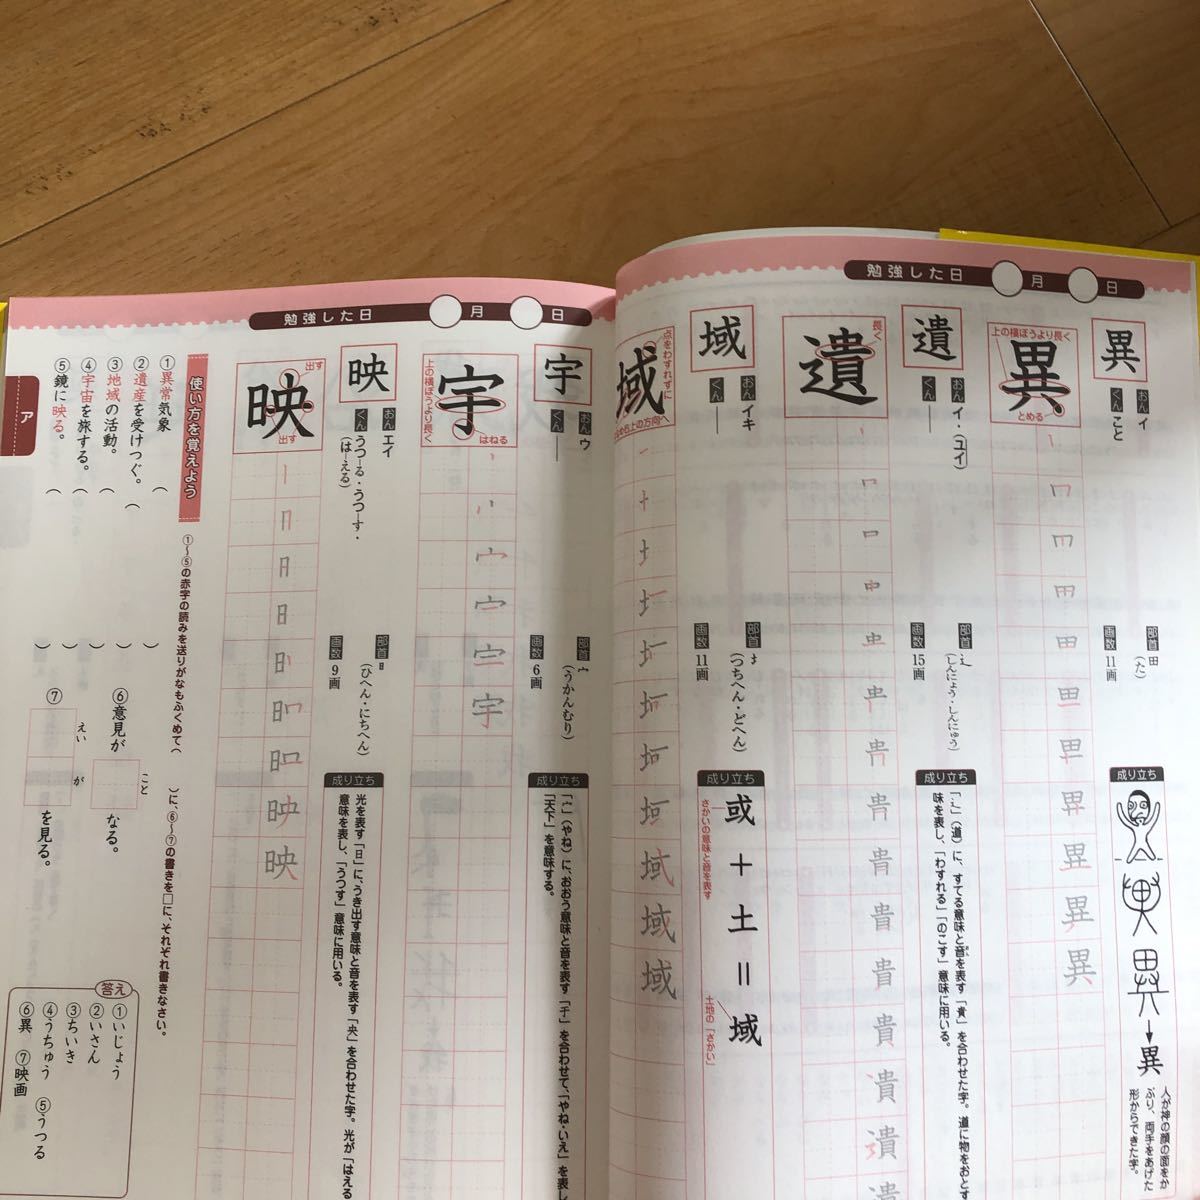 勉強した日 月 日
異
おん イ
くん こと
部首 田
(た)
画数 11画
成り立ち
異
人が神の顔の面をか
ぶり、両手をあげた
形からできた字。
異
上の横ぼうより長く
とめる
遺
おん イ・(ユイ)
くん ―
部首 辶
(しんにょう・しんにゅう)
画数 15画
成り立ち
「辶」(道)に、すてる意味と音を表す「貴」を合わせた字。道に物をおとす
味を表し、「わすれる」「のこす」意味に用いる。
遺
長く
域
おん イキ
くん ―
部首 土
(つちへん・どへん)
画数 11画
成り立ち
或+土=域
さかいの意味と音を表す
土地の「さかい」
域
点をわすれずに
右上の方向へ
勉強した日 月 日
宇
おん ウ
くん ―
部首 宀
(うかんむり)
画数 6画
成り立ち
「宀」(やね)に、おおう意味と音を表す「于」を合わせて、「やね・いえ」を表し
「天下」を意味する。
宇
上の横ぼうより長く
はねる
映
おん エイ
くん うつ―る・うつ―す・
(は―える)
部首 日
(ひへん・にちへん)
画数 9画
成り立ち
光を表す「日」に、うき出す意味と音を表す「央」を合わせた字。光が「はえる
意味を表し、「うつす」意味に用いる。
映
出す
出す
使い方を覚えよう
①〜⑤の赤字の読みを送りがなもふくめて( )に、⑥〜⑦の書きを□に、それぞれ書きなさい。
①異常気象 ( )
②遺産を受けつぐ。 ( )
③地域の活動。 ( )
④宇宙を旅する。 ( )
⑤鏡に映る。 ( )
⑥意見が□なる。
こと
⑦□□を見る。
えい が
答え
①いじょう
②いさん
③ちいき
④うちゅう ⑤うつる
⑥異 ⑦映画
ア